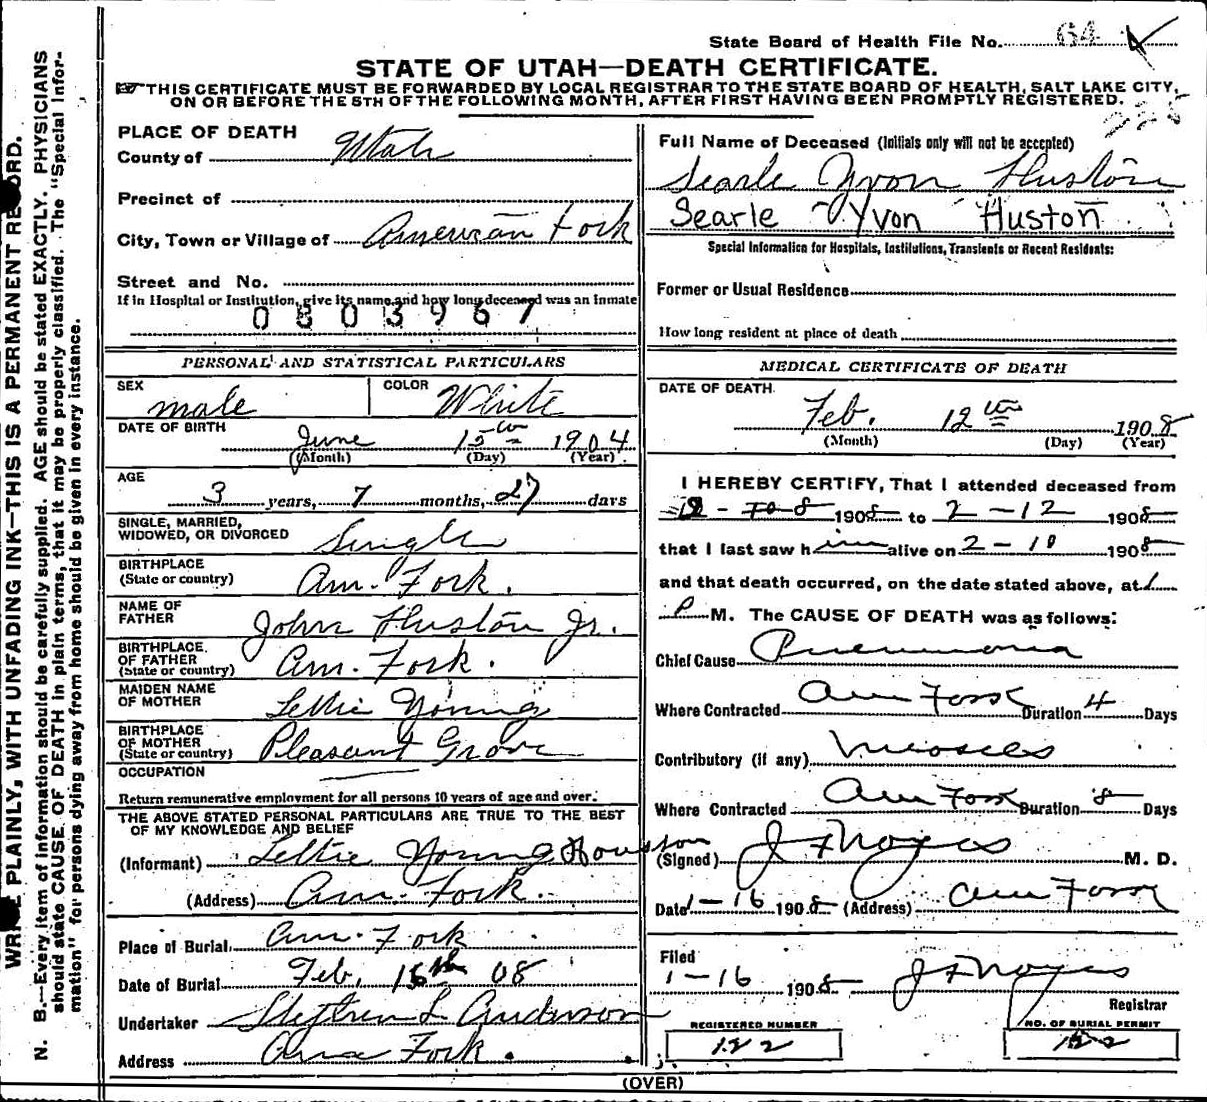 State Board of Health File No. 64
STATE OF UTAH—DEATH CERTIFICATE.
THIS CERTIFICATE MUST BE FORWARDED BY LOCAL REGISTRAR TO THE STATE BOARD OF HEALTH, SALT LAKE CITY,
ON OR BEFORE THE 5TH OF THE FOLLOWING MONTH, AFTER FIRST HAVING BEEN PROMPTLY REGISTERED.
WRITE PLAINLY, WITH UNFADING INK—THIS IS A PERMANENT RECORD.
N. B.—Every item of information should be carefully supplied. AGE should be stated EXACTLY. PHYSICIANS
should state CAUSE OF DEATH in plain terms, that it may be properly classified. The "Special Infor-
mation" for persons dying away from home should be given in every instance.
PLACE OF DEATH
County of Utah
Precinct of
City, Town or Village of American Fork
Street and No.
If in Hospital or Institution, give its name and how long deceased was an inmate
0803967
PERSONAL AND STATISTICAL PARTICULARS
SEX male COLOR White
DATE OF BIRTH June 15th 1904
(Month) (Day) (Year)
AGE 3 years, 7 months, 27 days
SINGLE, MARRIED,
WIDOWED, OR DIVORCED Single
BIRTHPLACE
(State or country) Am. Fork.
NAME OF
FATHER John Huston Jr.
BIRTHPLACE
OF FATHER
(State or country) Am. Fork.
MAIDEN NAME
OF MOTHER Lettie Young
BIRTHPLACE
OF MOTHER
(State or country) Pleasant Grove
OCCUPATION
Return remunerative employment for all persons 10 years of age and over.
THE ABOVE STATED PERSONAL PARTICULARS ARE TRUE TO THE BEST
OF MY KNOWLEDGE AND BELIEF
(Informant) Lettie Young Houston
(Address) Am. Fork.
Place of Burial Am. Fork
Date of Burial Feb. 15th 08
Undertaker Stephen L Anderson
Address Am Fork.
Full Name of Deceased (Initials only will not be accepted)
Searle Yvon Huston
Searle Yvon Huston
Special Information for Hospitals, Institutions, Transients or Recent Residents:
Former or Usual Residence
How long resident at place of death
MEDICAL CERTIFICATE OF DEATH
DATE OF DEATH
Feb. 12th 1908
(Month) (Day) (Year)
I HEREBY CERTIFY, That I attended deceased from
1908 to 2-12 1908
that I last saw him alive on 2-10 1908
and that death occurred, on the date stated above, at 1
P M. The CAUSE OF DEATH was as follows:
Chief Cause Pneumonia
Where Contracted Am Fork Duration 4 Days
Contributory (if any) Measles
Where Contracted Am Fork Duration 8 Days
(Signed) J F Noyes M. D.
Date 1-16 1908 (Address) Am Fork
Filed
1-16 1908 J F Noyes
Registrar
REGISTERED NUMBER NO. OF BURIAL PERMIT
122 122
(OVER)